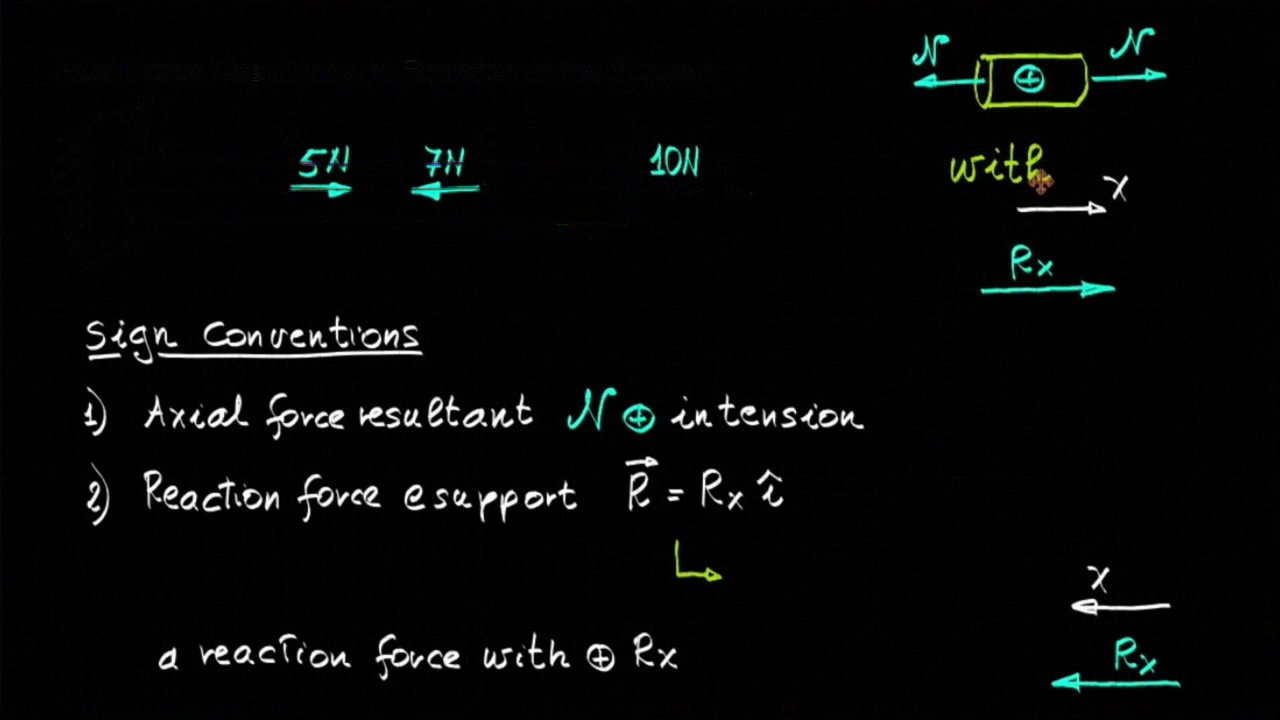 N N
5N 7N 10N
with
x
Rx
Sign Conventions
1) Axial force resultant N ⊕ in tension
2) Reaction force @ support R = Rx î
x
a reaction force with ⊕ Rx
Rx